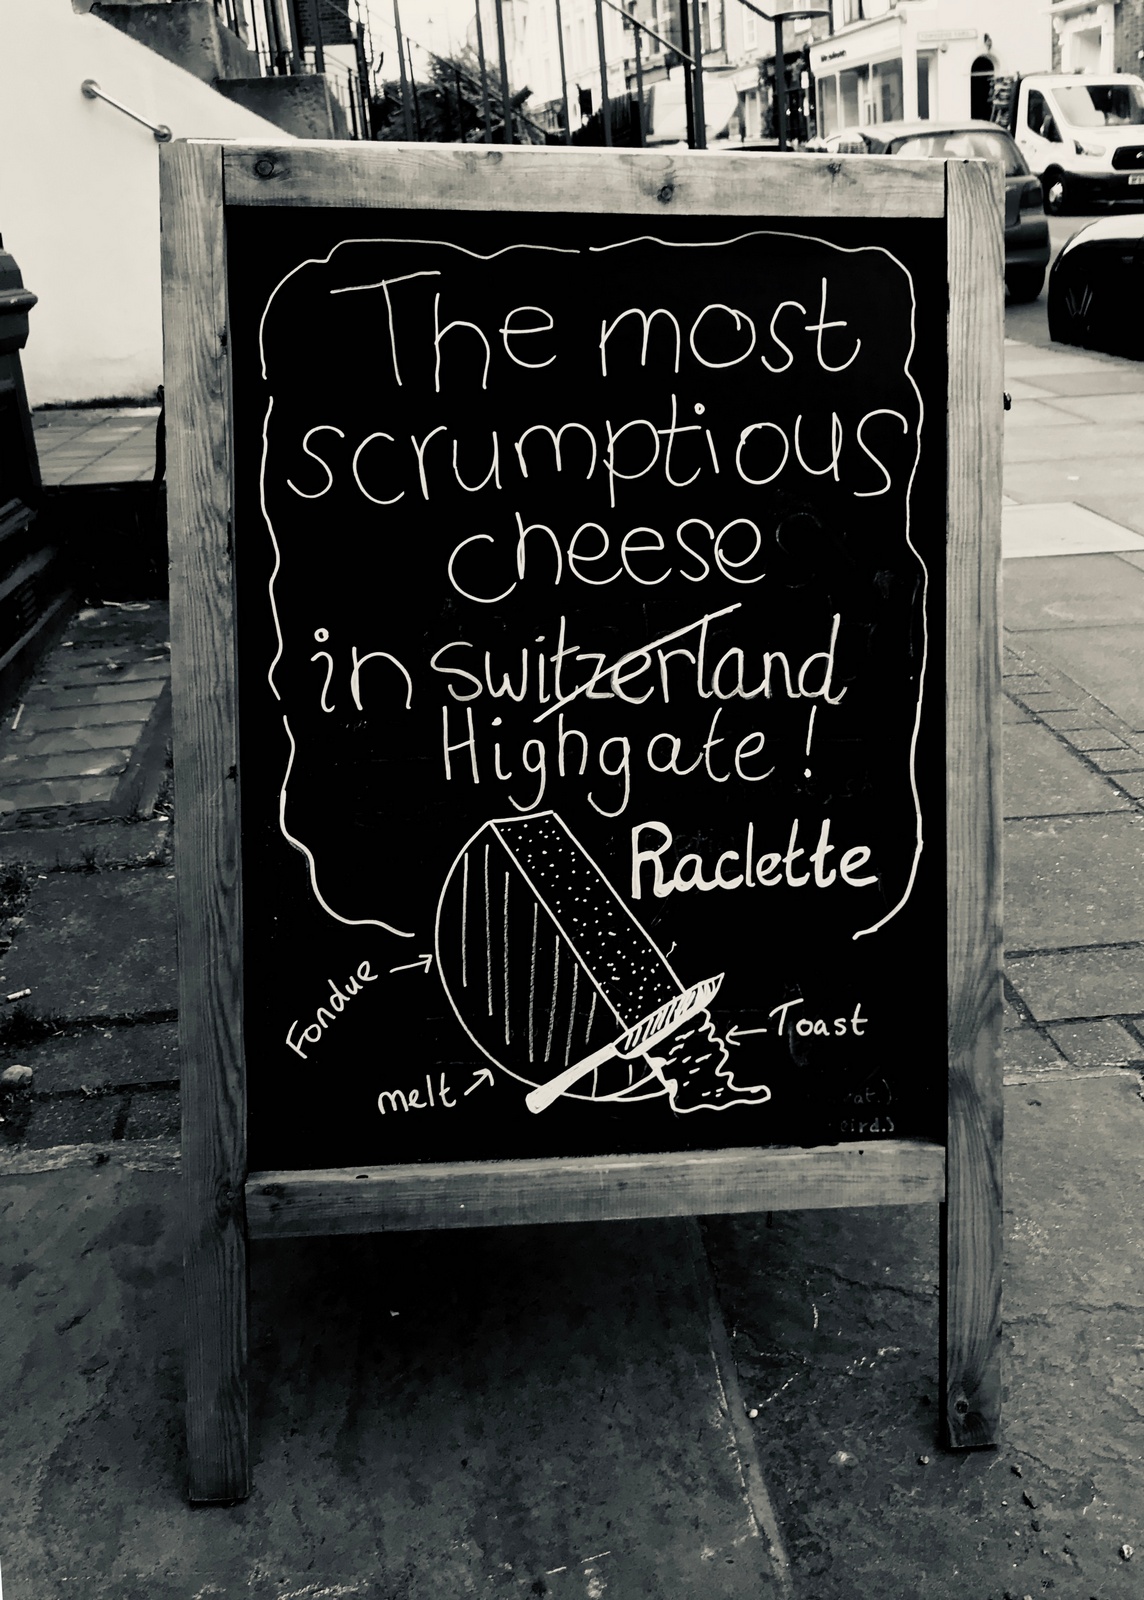 The most
scrumptious
cheese
in Switzerland
Highgate !
Raclette
Fondue
Toast
melt